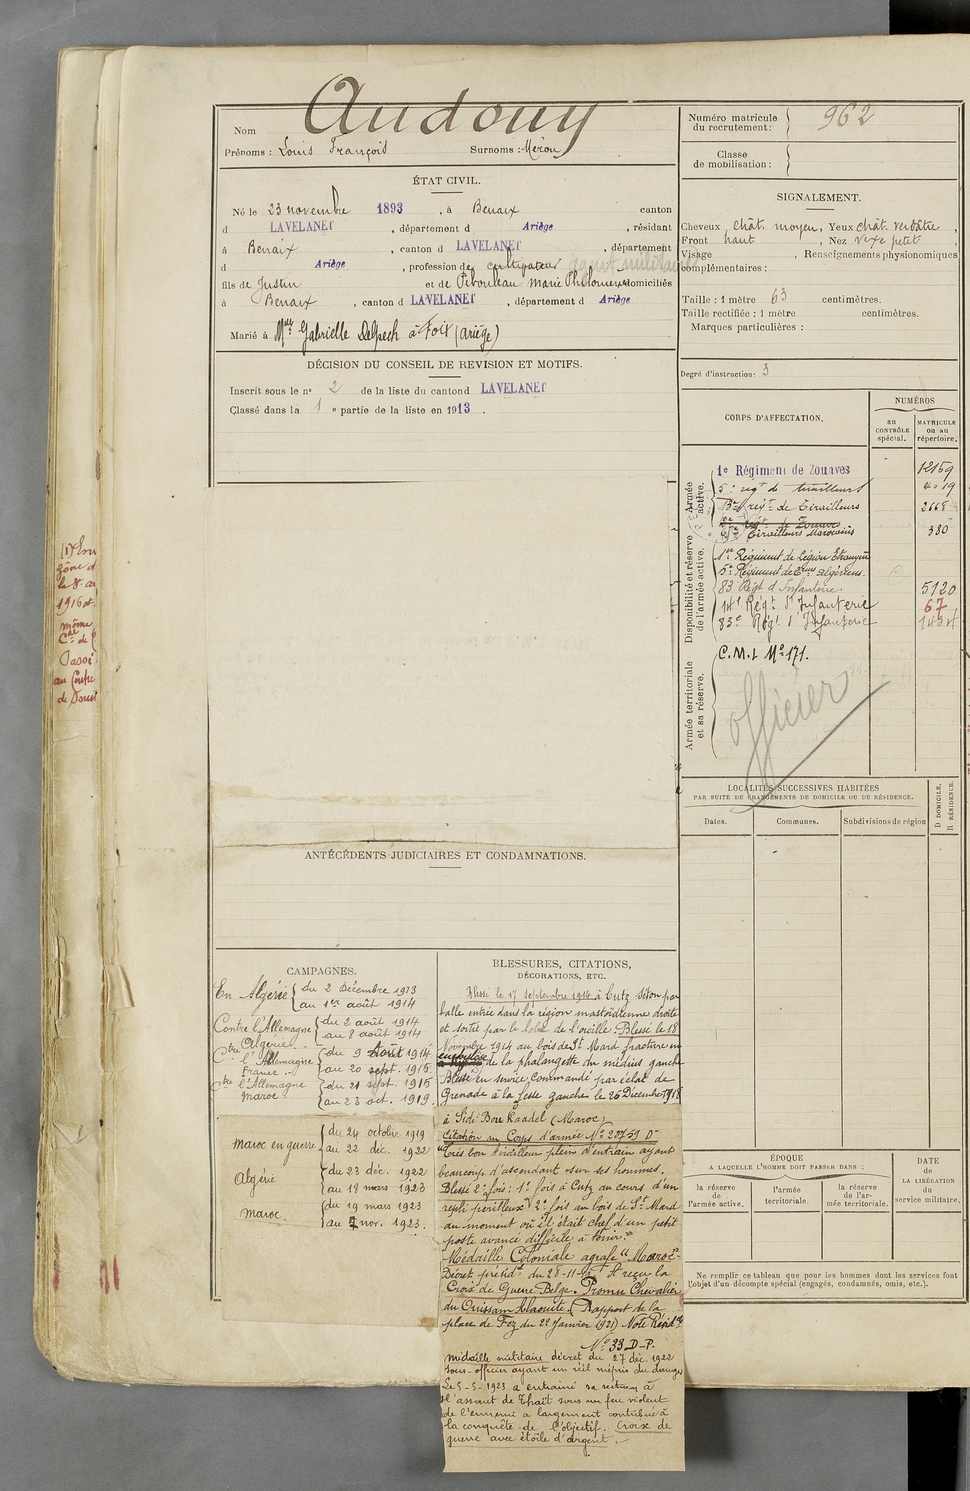 Nom Audouy
Prénoms : Louis François Surnoms : Méron
ÉTAT CIVIL.
Né le 23 novembre 1893, à Benaix canton
d LAVELANET, département d Ariège, résidant
à Benaix, canton d LAVELANET, département
d Ariège, profession de cultivateur
fils de Justin et de Pibouleau Marie Philomène domiciliés
à Benaix, canton d LAVELANET, département d Ariège
Marié à Mlle Gabrielle Delpech à Foix (Ariège)
DÉCISION DU CONSEIL DE REVISION ET MOTIFS.
Inscrit sous le n° 2 de la liste du canton d LAVELANET
Classé dans la 1 e partie de la liste en 1913.
ANTÉCÉDENTS JUDICIAIRES ET CONDAMNATIONS.
CAMPAGNES.
En Algérie du 2 Décembre 1913
au 1er août 1914
Contre l'Allemagne du 2 août 1914
Algérie au 8 août 1914
Ctre l'Allemagne du 9 Août 1914
France au 20 sept. 1915
Ctre l'Allemagne du 21 sept. 1915
Maroc au 23 oct. 1919
Maroc en guerre du 24 octobre 1919
au 22 déc. 1922
Algérie du 23 déc. 1922
au 18 mars 1923
Maroc. du 19 mars 1923
au 7 nov. 1923.
BLESSURES, CITATIONS,
DÉCORATIONS, ETC.
Blessé le 17 Septembre 1914 à Cutz Séton par
balle entrée dans la région mastoïdienne droite
et sortie par le lobe de l'oreille. Blessé le 18
Novembre 1914 au bois de St Mard fracture
de la phalangette du médius gauche
Blessé en service commandé par éclat de
Grenade à la fesse gauche le 26 Décembre 1918
à Sidi Bou Kaadel (Maroc)
Citation au Corps d'armée N° 23759 D
"Très bon tirailleur plein d'entrain ayant
beaucoup d'ascendant sur ses hommes.
Blessé 2 fois : 1e fois à Cutz au cours d'un
repli périlleux 2e fois au bois de St Mard
au moment où il était chef d'un petit
poste avancé difficile à tenir."
Médaille Coloniale agrafe "Maroc"
Décret présidel du 28-11- A reçu la
Croix de Guerre Belge. Promu Chevalier
du Ouissam Alaouite. (Rapport de la
place de Fez du 22 Janvier 1921) Note
N° 33 D-P.
Médaille militaire décret du 27 déc. 1922
Sous-officier ayant un réel mépris du danger
Le 5-5-1923 a entrainé sa section à
l'assaut de sous un feu violent
de l'ennemi a largement contribué à
la conquête de l'objectif. Croix de
guerre avec étoile d'argent.
Numéro matricule
du recrutement : 962
Classe
de mobilisation :
SIGNALEMENT.
Cheveux chât. moyen, Yeux chât. verdâtre,
Front haut, Nez vexe petit
Visage , Renseignements physionomiques
complémentaires :
Taille : 1 mètre 63 centimètres.
Taille rectifiée : 1 mètre centimètres.
Marques particulières :
Degré d'instruction : 3
CORPS D'AFFECTATION.
NUMÉROS
au
CONTRÔLE
spécial.
MATRICULE
ou au
répertoire.
Armée
active.
1e Régiment de Zouaves 12169
5e regt de tirailleurs 4019
regt de Tirailleurs 2668
regt de Zouaves
Tirailleurs Marocains 380
Disponibilité et réserve
de l'armée active.
1er Régiment de Légion Etrangère
5e Régiment de Algériens.
83 Régt d'Infanterie. 5120
14e Régt d'Infanterie 67
83e Régt d'Infanterie 1434
Armée territoriale
et sa réserve.
C.M.I N° 171.
officier
LOCALITÉS SUCCESSIVES HABITÉES
PAR SUITE DE CHANGEMENTS DE DOMICILE OU DE RÉSIDENCE.
Dates. Communes. Subdivisions de région
D DOMICILE.
R RÉSIDENCE.
ÉPOQUE
A LAQUELLE L'HOMME DOIT PASSER DANS :
la réserve
de
l'armée active.
l'armée
territoriale.
la réserve
de l'ar-
mée territoriale.
DATE
de
LA LIBÉRATION
du
service militaire.
Ne remplir ce tableau que pour les hommes dont les services font
l'objet d'un décompte spécial (engagés, condamnés, omis, etc.).
1916
même
Passé